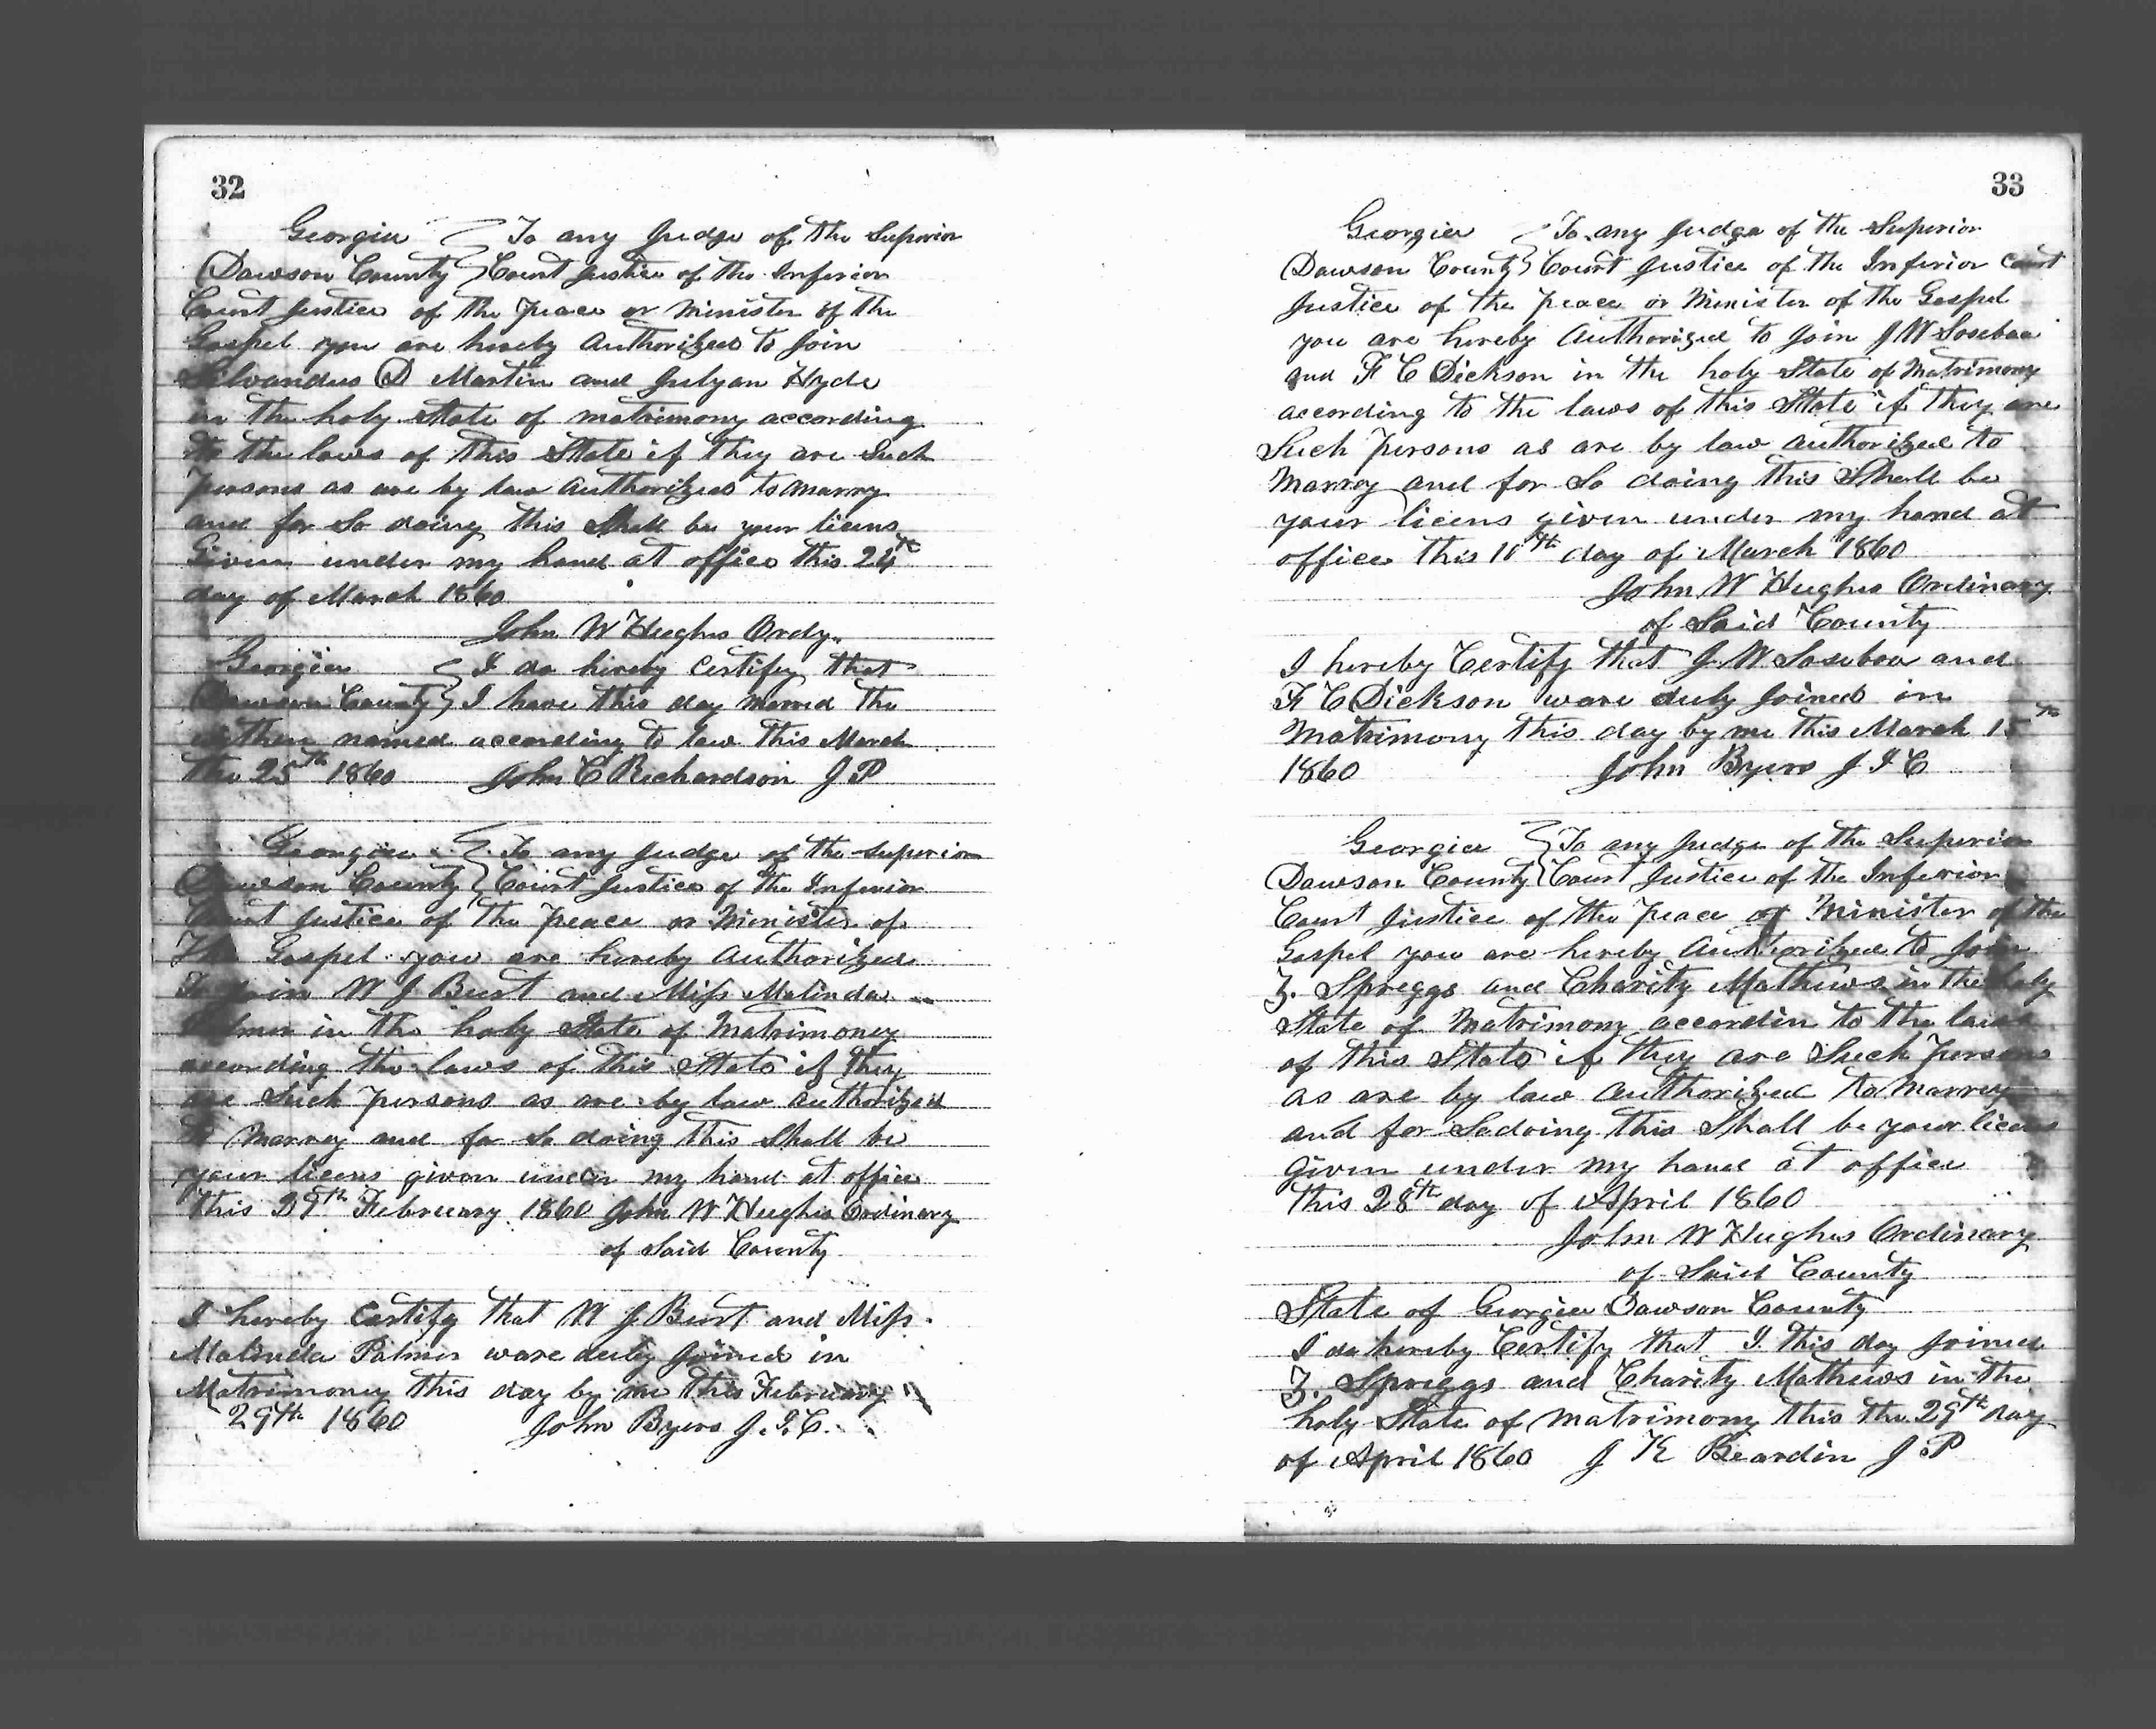 32
Georgia } To any Judge of the Superior
Dawson County } Court Justice of the Inferior
Court Justice of the Peace or Minister of the
Gospel you are hereby Authorized to Join
Silvandus D Martin and Julyan Hyde
in the holy State of matrimony according
to the laws of this State if they are Such
Persons as are by law Authorized to marry
and for So doing this Shall be your licens
Given under my hand at office this 24th
day of March 1860
John W Hughs Ordy.
Georgia } I do hereby Certify that
Dawson County } I have this day married the
within named according to law this March
the 25th 1860 John C Richardson J P
Georgia } To any Judge of the Superior
Dawson County } Court Justice of the Inferior
Court Justice of the Peace or Minister of
The Gospel you are hereby Authorized
To Join W J Burt and Miss Malinda
Palmer in the holy State of Matrimoney
according the laws of this State if they
are Such Persons as are by law Authorized
to Marrey and for So doing this Shall be
your licens given under my hand at office
this 29th February 1860 John W Hughs Ordinary
of Said County
I hereby Certify that W J Burt and Miss
Malinda Palmer ware duly Joined in
Matrimoney this day by me this February
29th 1860 John Byers J. I. C.
33
Georgia } To any Judge of the Superior
Dawson County } Court Justice of the Inferior Court
Justice of the Peace or Minister of the Gospel
you are hereby Authorized to Join J W Sosebee
and F C Dickson in the holy State of Matrimony
according to the laws of this State if they are
Such Persons as are by law Authorized to
Marrey and for So doing this Shall be
your licens given under my hand at
office this 10th day of March 1860
John W Hughs Ordinary
of Said County
I hereby Certify that J. W Sosebee and
F C Dickson ware duly Joined in
Matrimony this day by me this March 15th
1860 John Byers J I C
Georgia } To any Judge of the Superior
Dawson County } Court Justice of the Inferior
Court Justice of the Peace or Minister of the
Gospel you are hereby Authorized to Join
Z. Spreggs and Charity Mathews in the holy
State of Matrimony accordin to the laws
of this State if they are Such Persons
as are by law Authorized to Marrey
and for Sodoing this Shall be your licens
given under my hand at office
this 28th day of April 1860
John W Hughs Ordinary
of Said County
State of Georgia Dawson County
I do hereby Certify that I this day Joined
Z. Spreggs and Charity Mathews in the
holy State of matrimony this the 29th day
of April 1860 J K Beardin J P